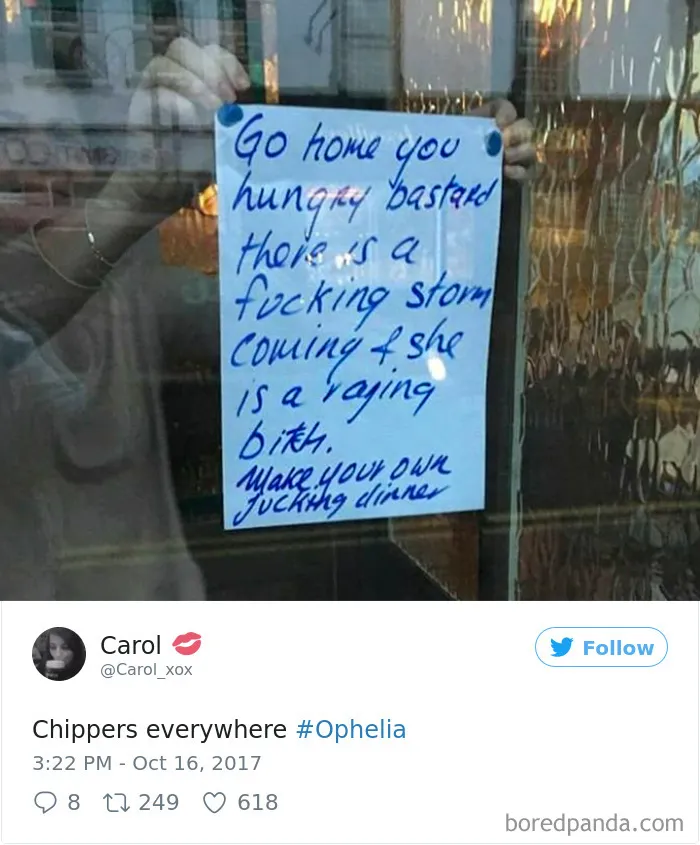 Go home you
hungry bastard
there is a
fucking storm
coming & she
is a raging
bitch.
Make your own
fucking dinner
Carol 💋
@Carol_xox
Follow
Chippers everywhere #Ophelia
3:22 PM - Oct 16, 2017
8 249 618
boredpanda.com